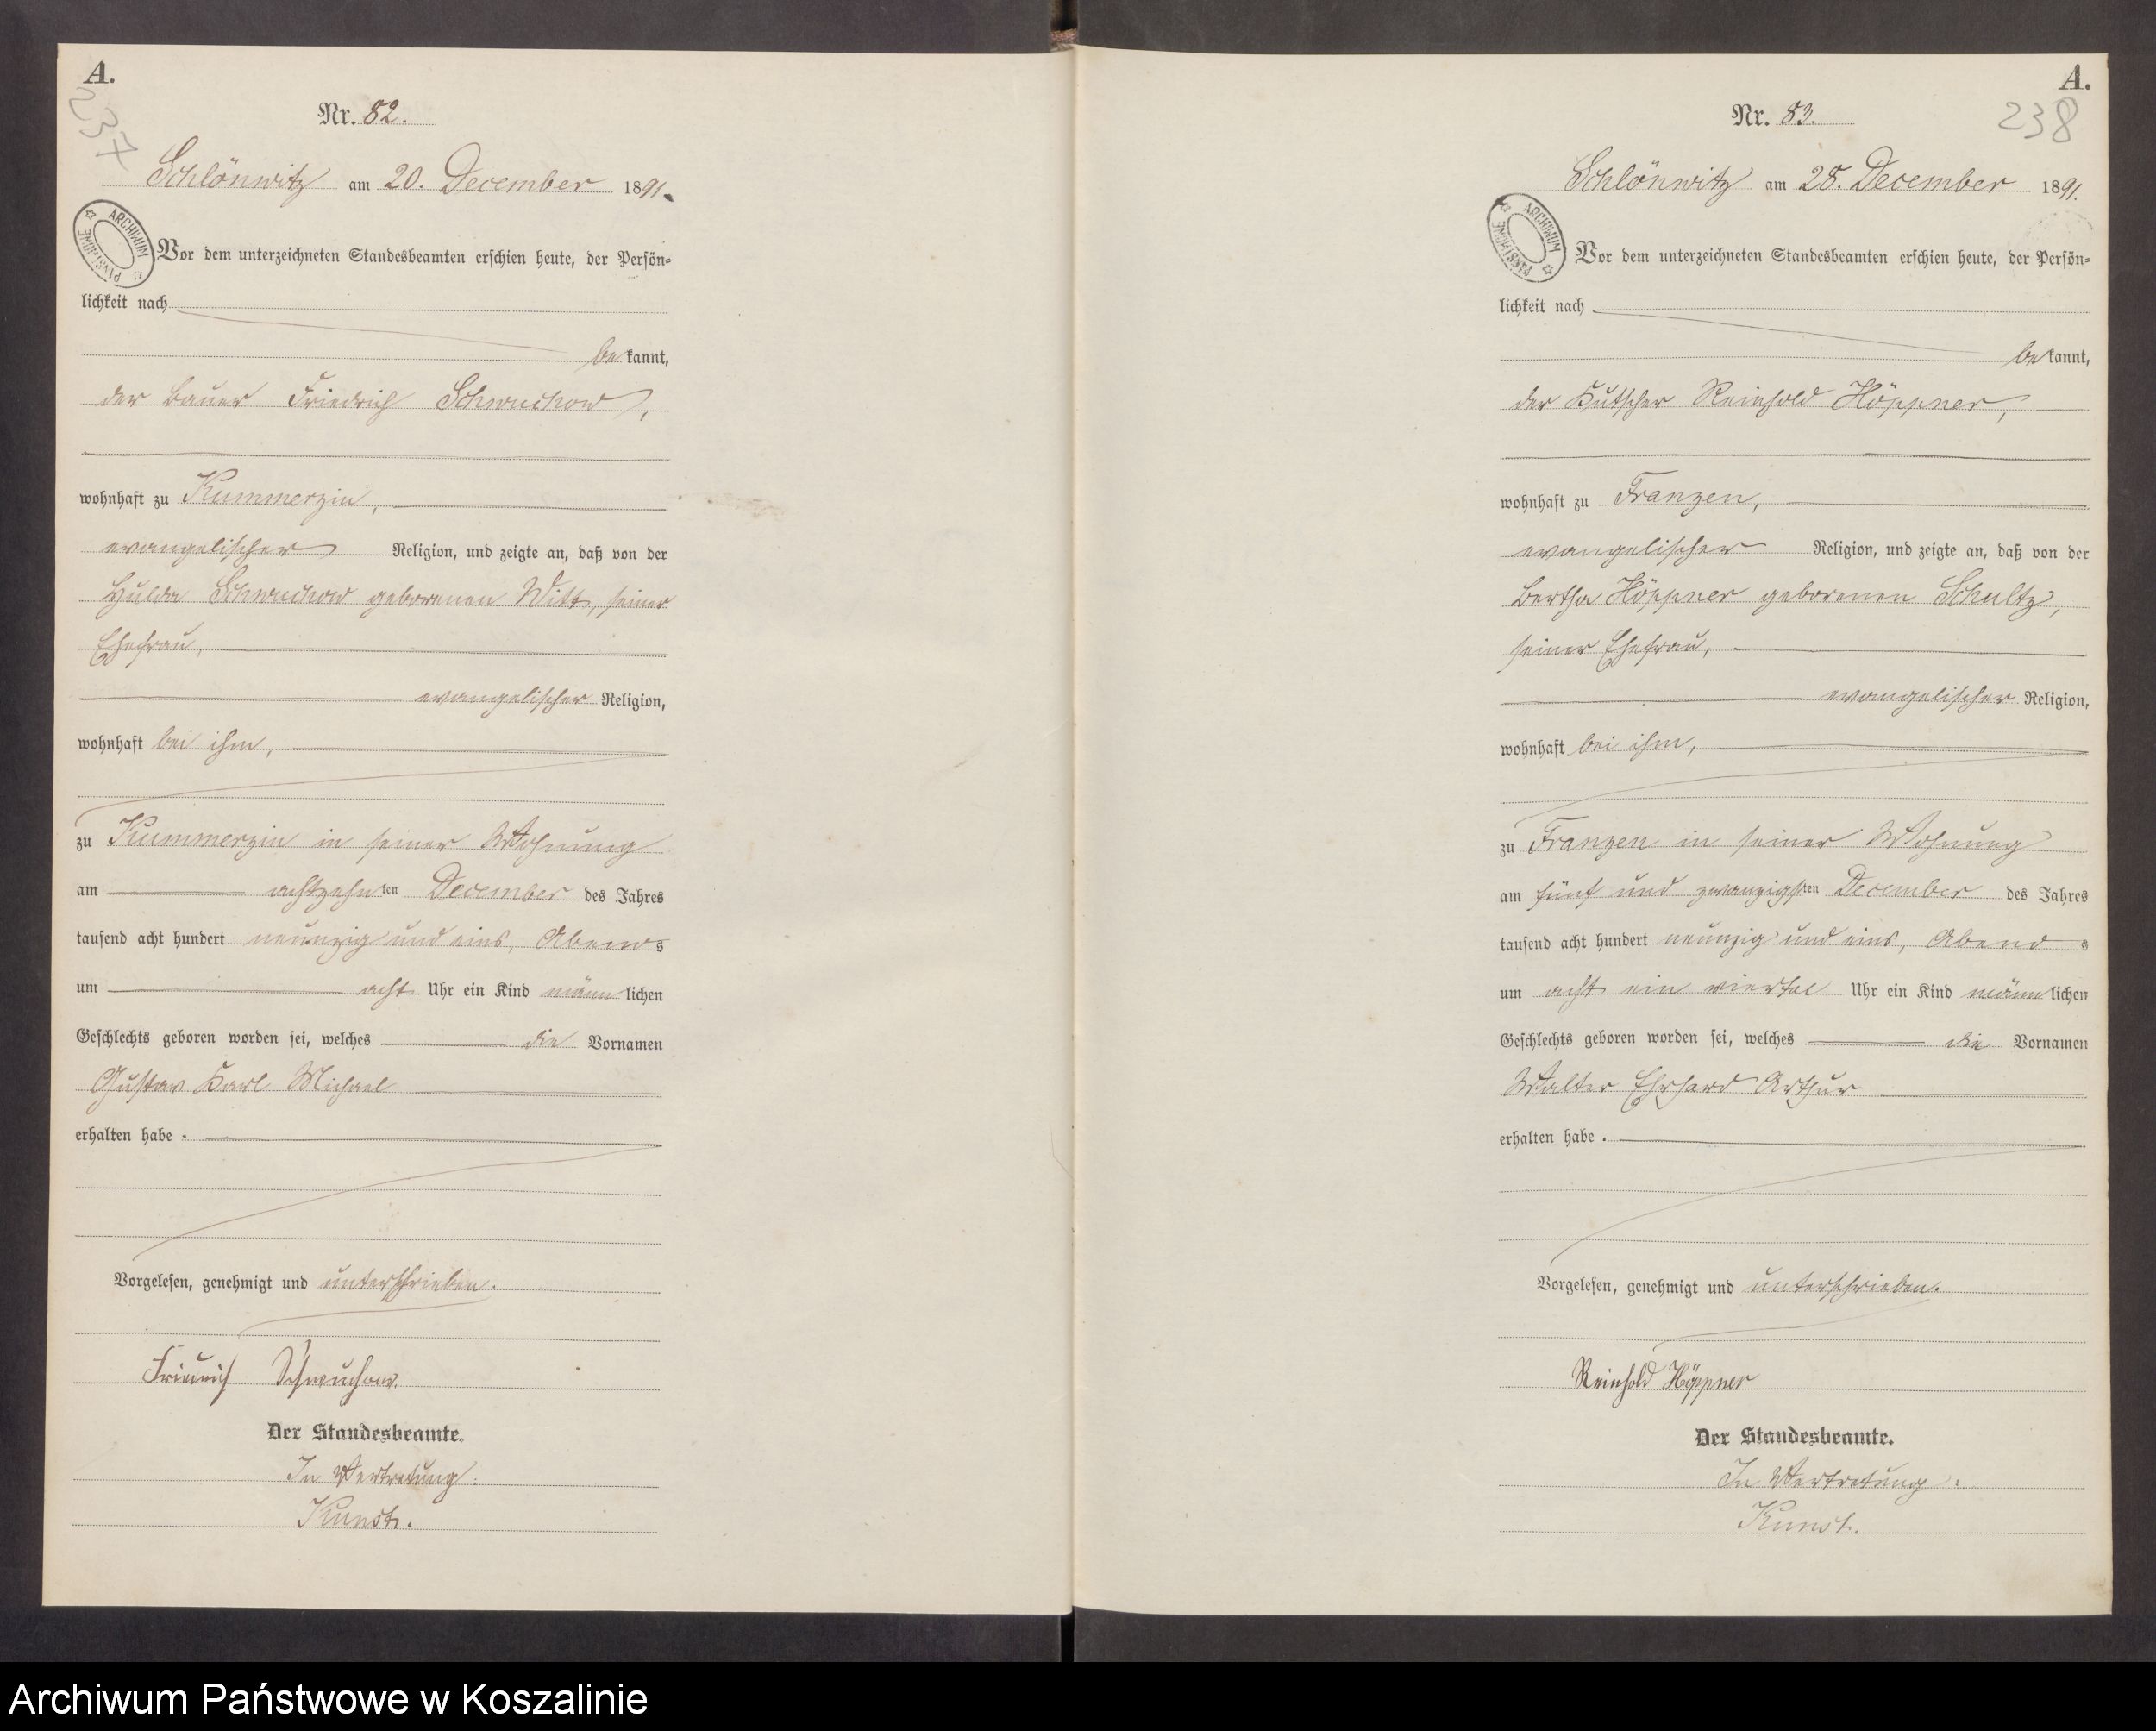 A.
237
Nr. 82.
Schlönwitz am 20. December 1891.
ARCHIWUM PAŃSTWOWE
Vor dem unterzeichneten Standesbeamten erschien heute, der Persön-
lichkeit nach
be kannt,
der Bauer Friedrich Schwuchow,
wohnhaft zu Kummerzin,
evangelischer Religion, und zeigte an, daß von der
Hulda Schwuchow geborenen Witt, seiner
Ehefrau,
evangelischer Religion,
wohnhaft bei ihm,
zu Kummerzin in seiner Wohnung
am achtzehn ten December des Jahres
tausend acht hundert neunzig und eins, Abends
um acht Uhr ein Kind männ lichen
Geschlechts geboren worden sei, welches die Vornamen
Gustav Karl Michael
erhalten habe .
Vorgelesen, genehmigt und unterschrieben.
Friedrich Schwuchow.
Der Standesbeamte.
In Vertretung:
Kunst.
A.
238
Nr. 83.
Schlönwitz am 28. December 1891.
ARCHIWUM PAŃSTWOWE
Vor dem unterzeichneten Standesbeamten erschien heute, der Persön-
lichkeit nach
be kannt,
der Kutscher Reinhold Höppner,
wohnhaft zu Franzen,
evangelischer Religion, und zeigte an, daß von der
Bertha Höppner geborenen Schultz,
seiner Ehefrau,
evangelischer Religion,
wohnhaft bei ihm,
zu Franzen in seiner Wohnung
am fünf und zwanzigsten December des Jahres
tausend acht hundert neunzig und eins, Abend s
um acht ein viertel Uhr ein Kind männ lichen
Geschlechts geboren worden sei, welches die Vornamen
Walter Ehrhard Arthur
erhalten habe .
Vorgelesen, genehmigt und unterschrieben.
Reinhold Höppner
Der Standesbeamte.
In Vertretung:
Kunst.
Archiwum Państwowe w Koszalinie